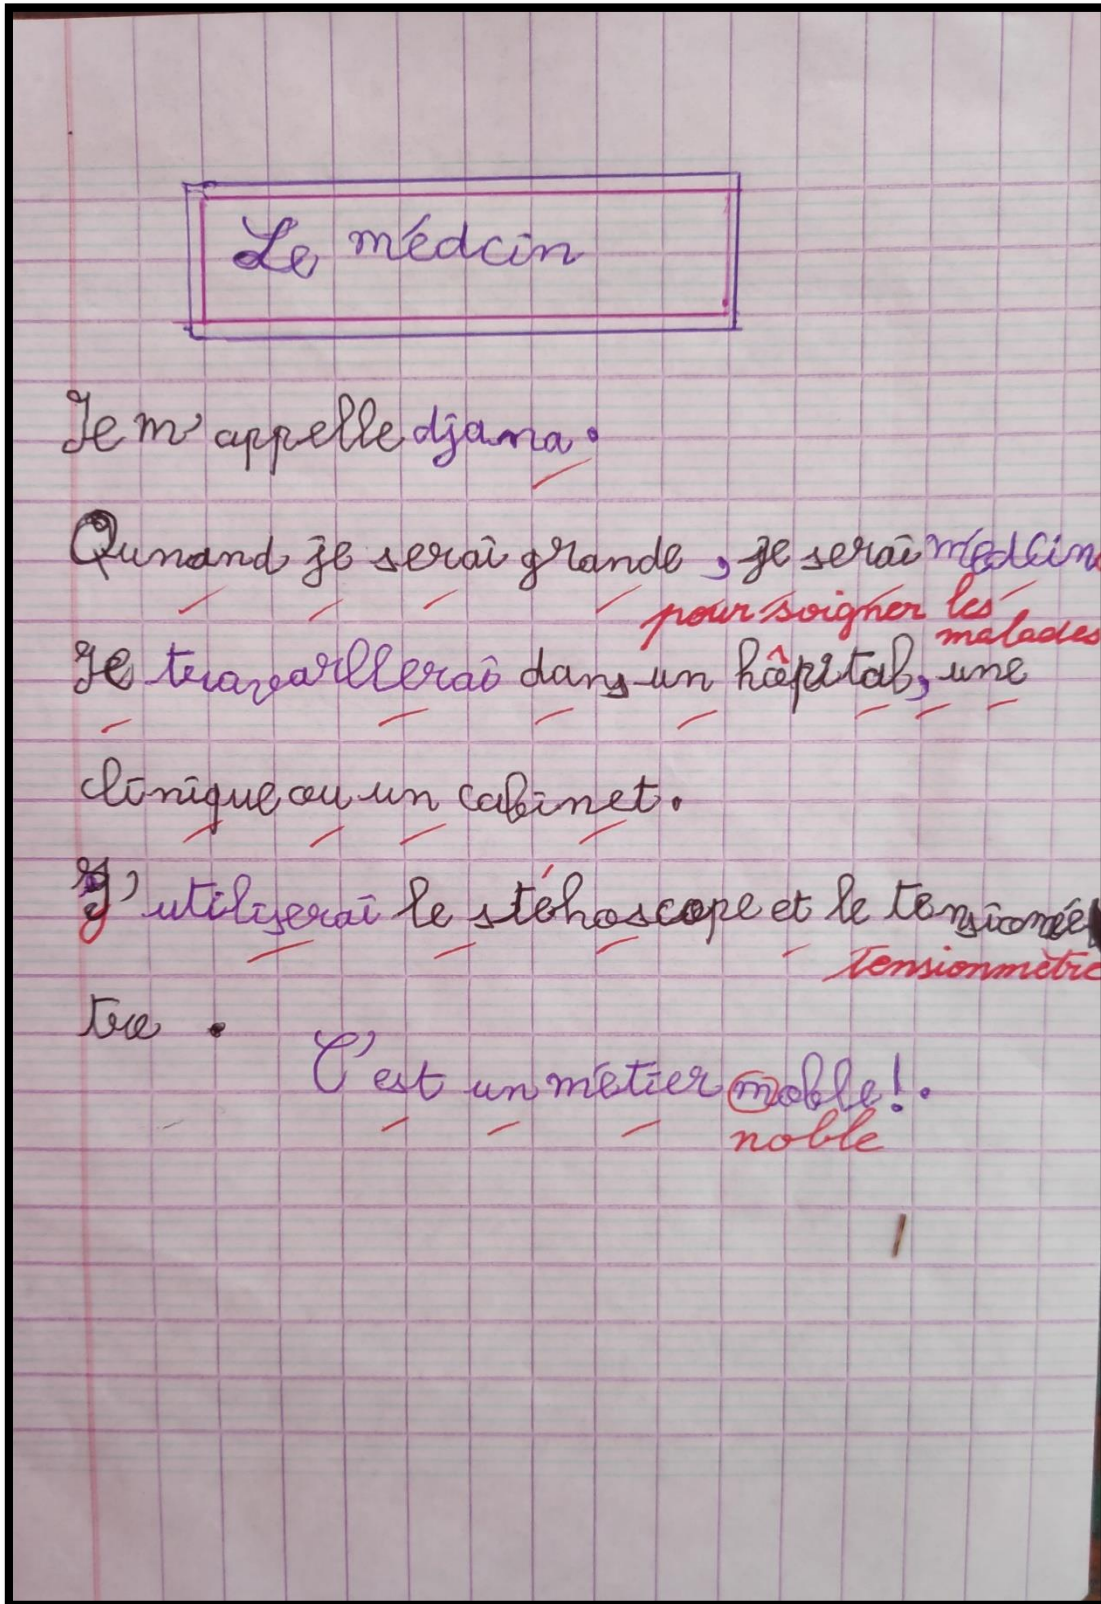 Le médcin
Je m'appelle djana.
Qunand je serai grande, je serai médcin
pour soigner les
malades
Je travarllerai dans un hôpital, une
clinique ou un cabinet.
J'utiliserai le stéhoscope et le tensiomé
tensionmètre
tre.
C'est un métier moble!.
noble